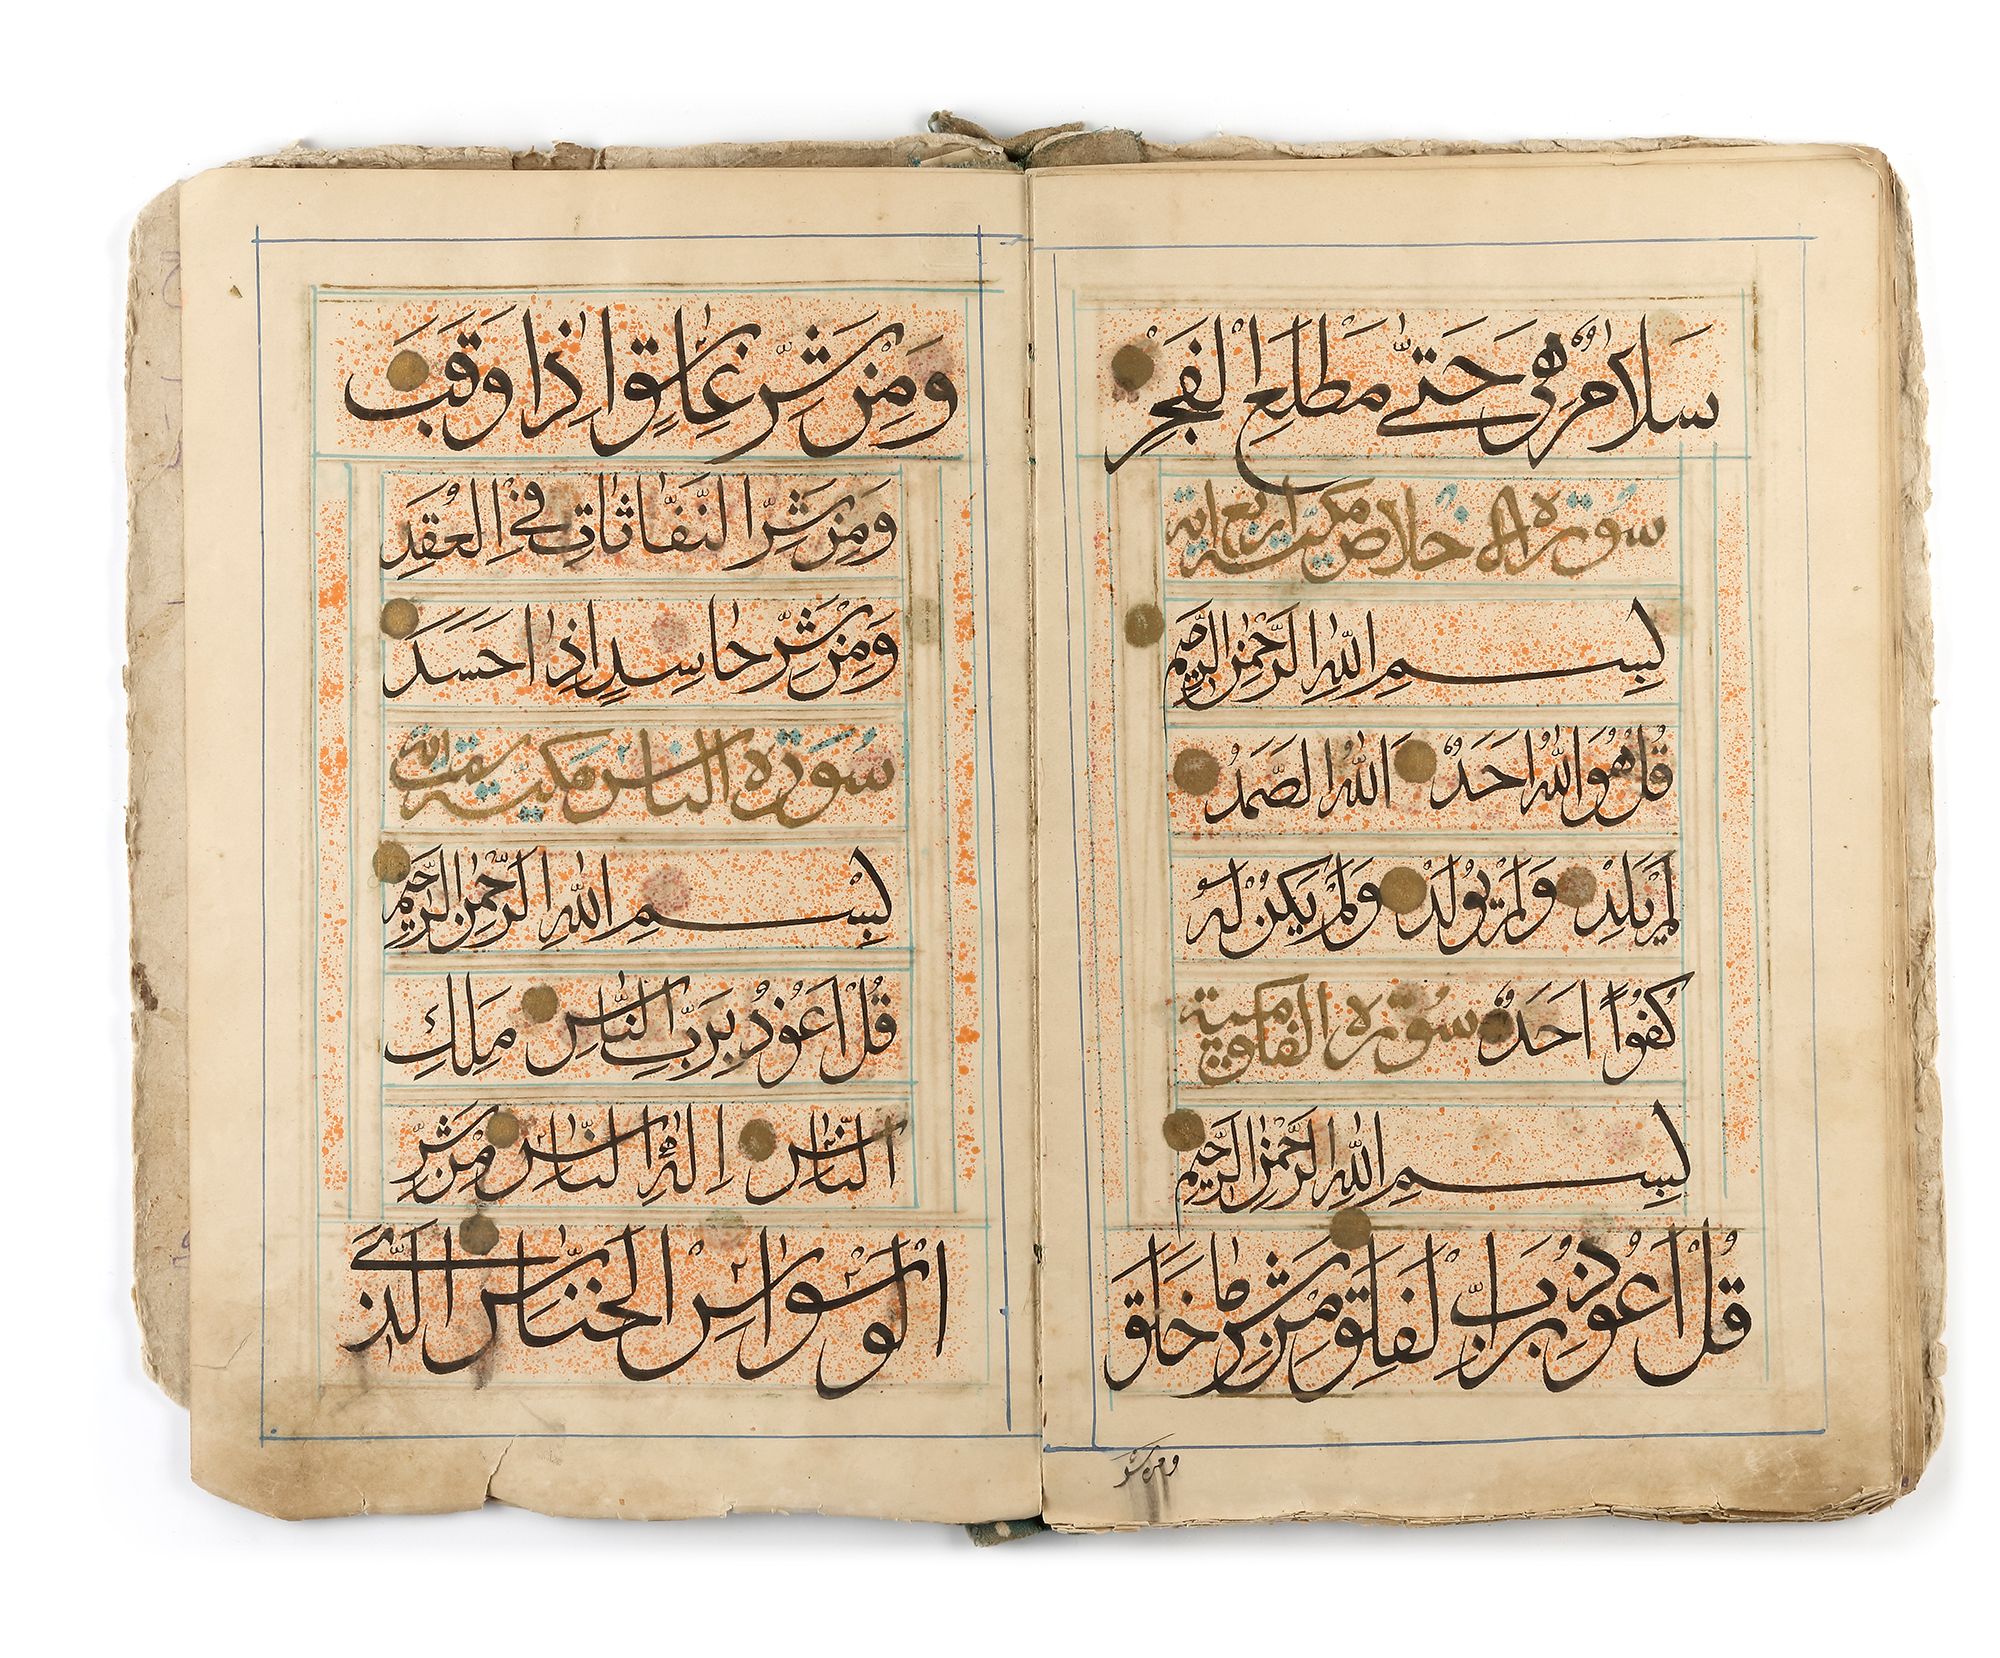 سَلَامٌ هِيَ حَتَّى مَطْلَعِ الْفَجْرِ
سورة الاخلاص مكية اربع اية
بِسْمِ اللهِ الرَّحْمٰنِ الرَّحِيمِ
قُلْ هُوَ اللهُ اَحَدٌ اَللهُ الصَّمَدُ
لَمْ يَلِدْ وَلَمْ يُولَدْ وَلَمْ يَكُنْ لَهُ
كُفُوًا اَحَدٌ سورة الفلق مكية
بِسْمِ اللهِ الرَّحْمٰنِ الرَّحِيمِ
قُلْ اَعُوذُ بِرَبِّ الْفَلَقِ مِنْ شَرِّ مَا خَلَقَ
ومن شر
وَمِنْ شَرِّ غَاسِقٍ اِذَا وَقَبَ
وَمِنْ شَرِّ النَّفَّاثَاتِ فِي الْعُقَدِ
وَمِنْ شَرِّ حَاسِدٍ اِذَا حَسَدَ
سورة الناس مكية
بِسْمِ اللهِ الرَّحْمٰنِ الرَّحِيمِ
قُلْ اَعُوذُ بِرَبِّ النَّاسِ مَلِكِ
النَّاسِ اِلٰهِ النَّاسِ مِنْ شَرِّ
الْوَسْوَاسِ الْخَنَّاسِ الَّذِي